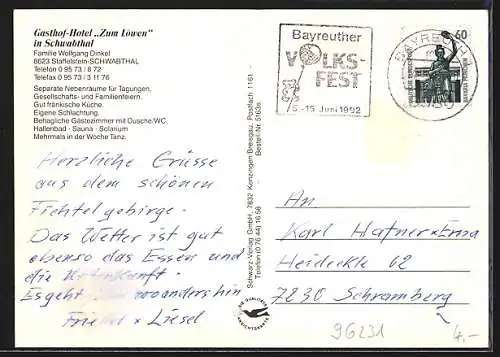 Gasthof-Hotel „Zum Löwen"
in Schwabthal
Familie Wolfgang Dinkel
8623 Staffelstein-SCHWABTHAL
Telefon 0 95 73 / 8 72
Telefax 0 95 73 / 3 11 76
Separate Nebenräume für Tagungen,
Gesellschafts- und Familienfeiern.
Gut fränkische Küche.
Eigene Schlachtung.
Behagliche Gästezimmer mit Dusche/WC.
Hallenbad - Sauna - Solarium
Mehrmals in der Woche Tanz.
Bayreuther
VOLKS-
FEST
5.-15 Juni 1992
BAYREUTH
60
Herzliche Grüsse
aus dem schönen
Fichtelgebirge.
Das Wetter ist gut
ebenso das Essen und
die Unterkunft.
Es geht woanders hin
Friedel x Liesel
Schwarz-Verlag GmbH, 7832 Kenzingen-Breisgau, Postfach 1161
Telefon (0 76 44) 16 56 Bestell-Nr. 5163s
An
Karl Hafner x Erna
Heideckle 62
7230 Schramberg
96231
4.-